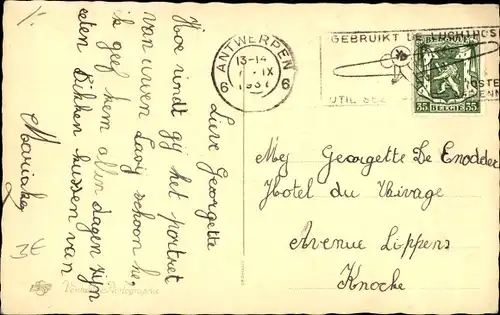 1.
Lieve Georgette
Hoe vindt gij het portret
van uwen Lary schoon hé,
ik geef hem allen dagen zijn
eeten Dikken kussen van
Mariake
ANTWERPEN
13-14
IX
193
6 6
GEBRUIKT DE LUCHTPOST
BELGIQUE
35 BELGIE 35
Mej Georgette De Enodder
Hotel du Rivage
Avenue Lippens
Knocke